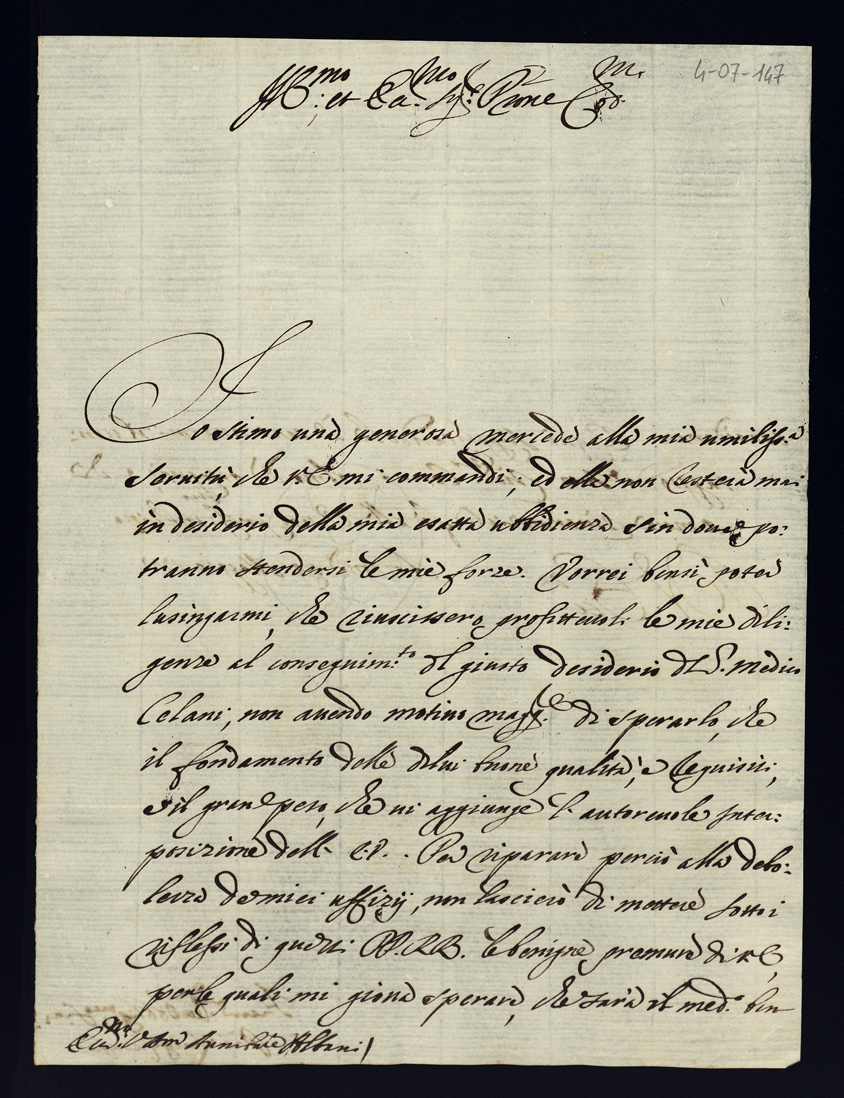 4-07-147
Ill.mo et Ecc.mo Sig.e Prone Col.m
Io stimo una generosa mercede alla mia umiliss.a
servitù, che V.E. mi commandi, ed ella non resterà mai
in desiderio della mia esatta ubbidienza sin dove po:
tranno stendersi le mie forze. Vorrei bensì poter
lusingarmi, che riuscissero profittevoli le mie dili:
genze al conseguim.to del giusto desiderio del S. Medico
Celani, non avendo motivo magg.e di sperarlo, che
il fondamento delle di lui buone qualità, e requisiti,
e il gran peso, che vi aggiunge l'autorevole Inter:
posizione dell' E.V. . Per riparare perciò alla debo:
lezza de miei uffizij, non lascierò di mettere sotto i
riflessi di questi PP.RR. le benigne premure di V.E.
per le quali mi giova sperare, che sarà il med.o ben
Ecc.mo Annibale Albani